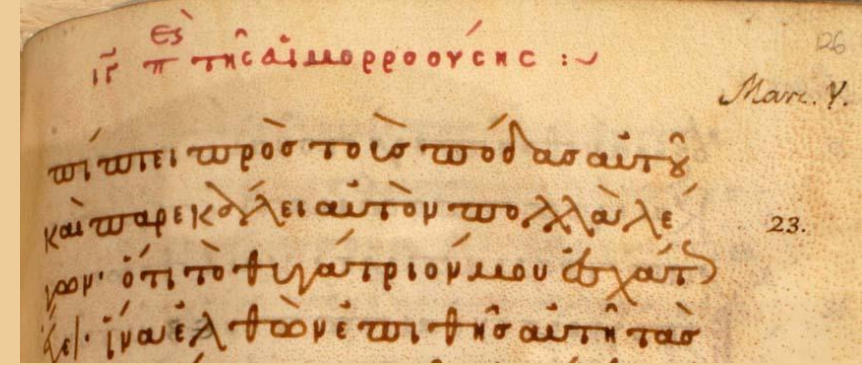 ιγ π τῆς αἱμορροούσης :~
Marc. V.
πίπτει πρὸς τοὺς πόδας αὐτοῦ
καὶ παρεκάλει αὐτὸν πολλὰ λέ
23.
γων· ὅτι τὸ θυγάτριόν μου ἐσχάτ
ἔχει· ἵνα ἐλθὼν ἐπιθῆς αὐτῆ τὰς